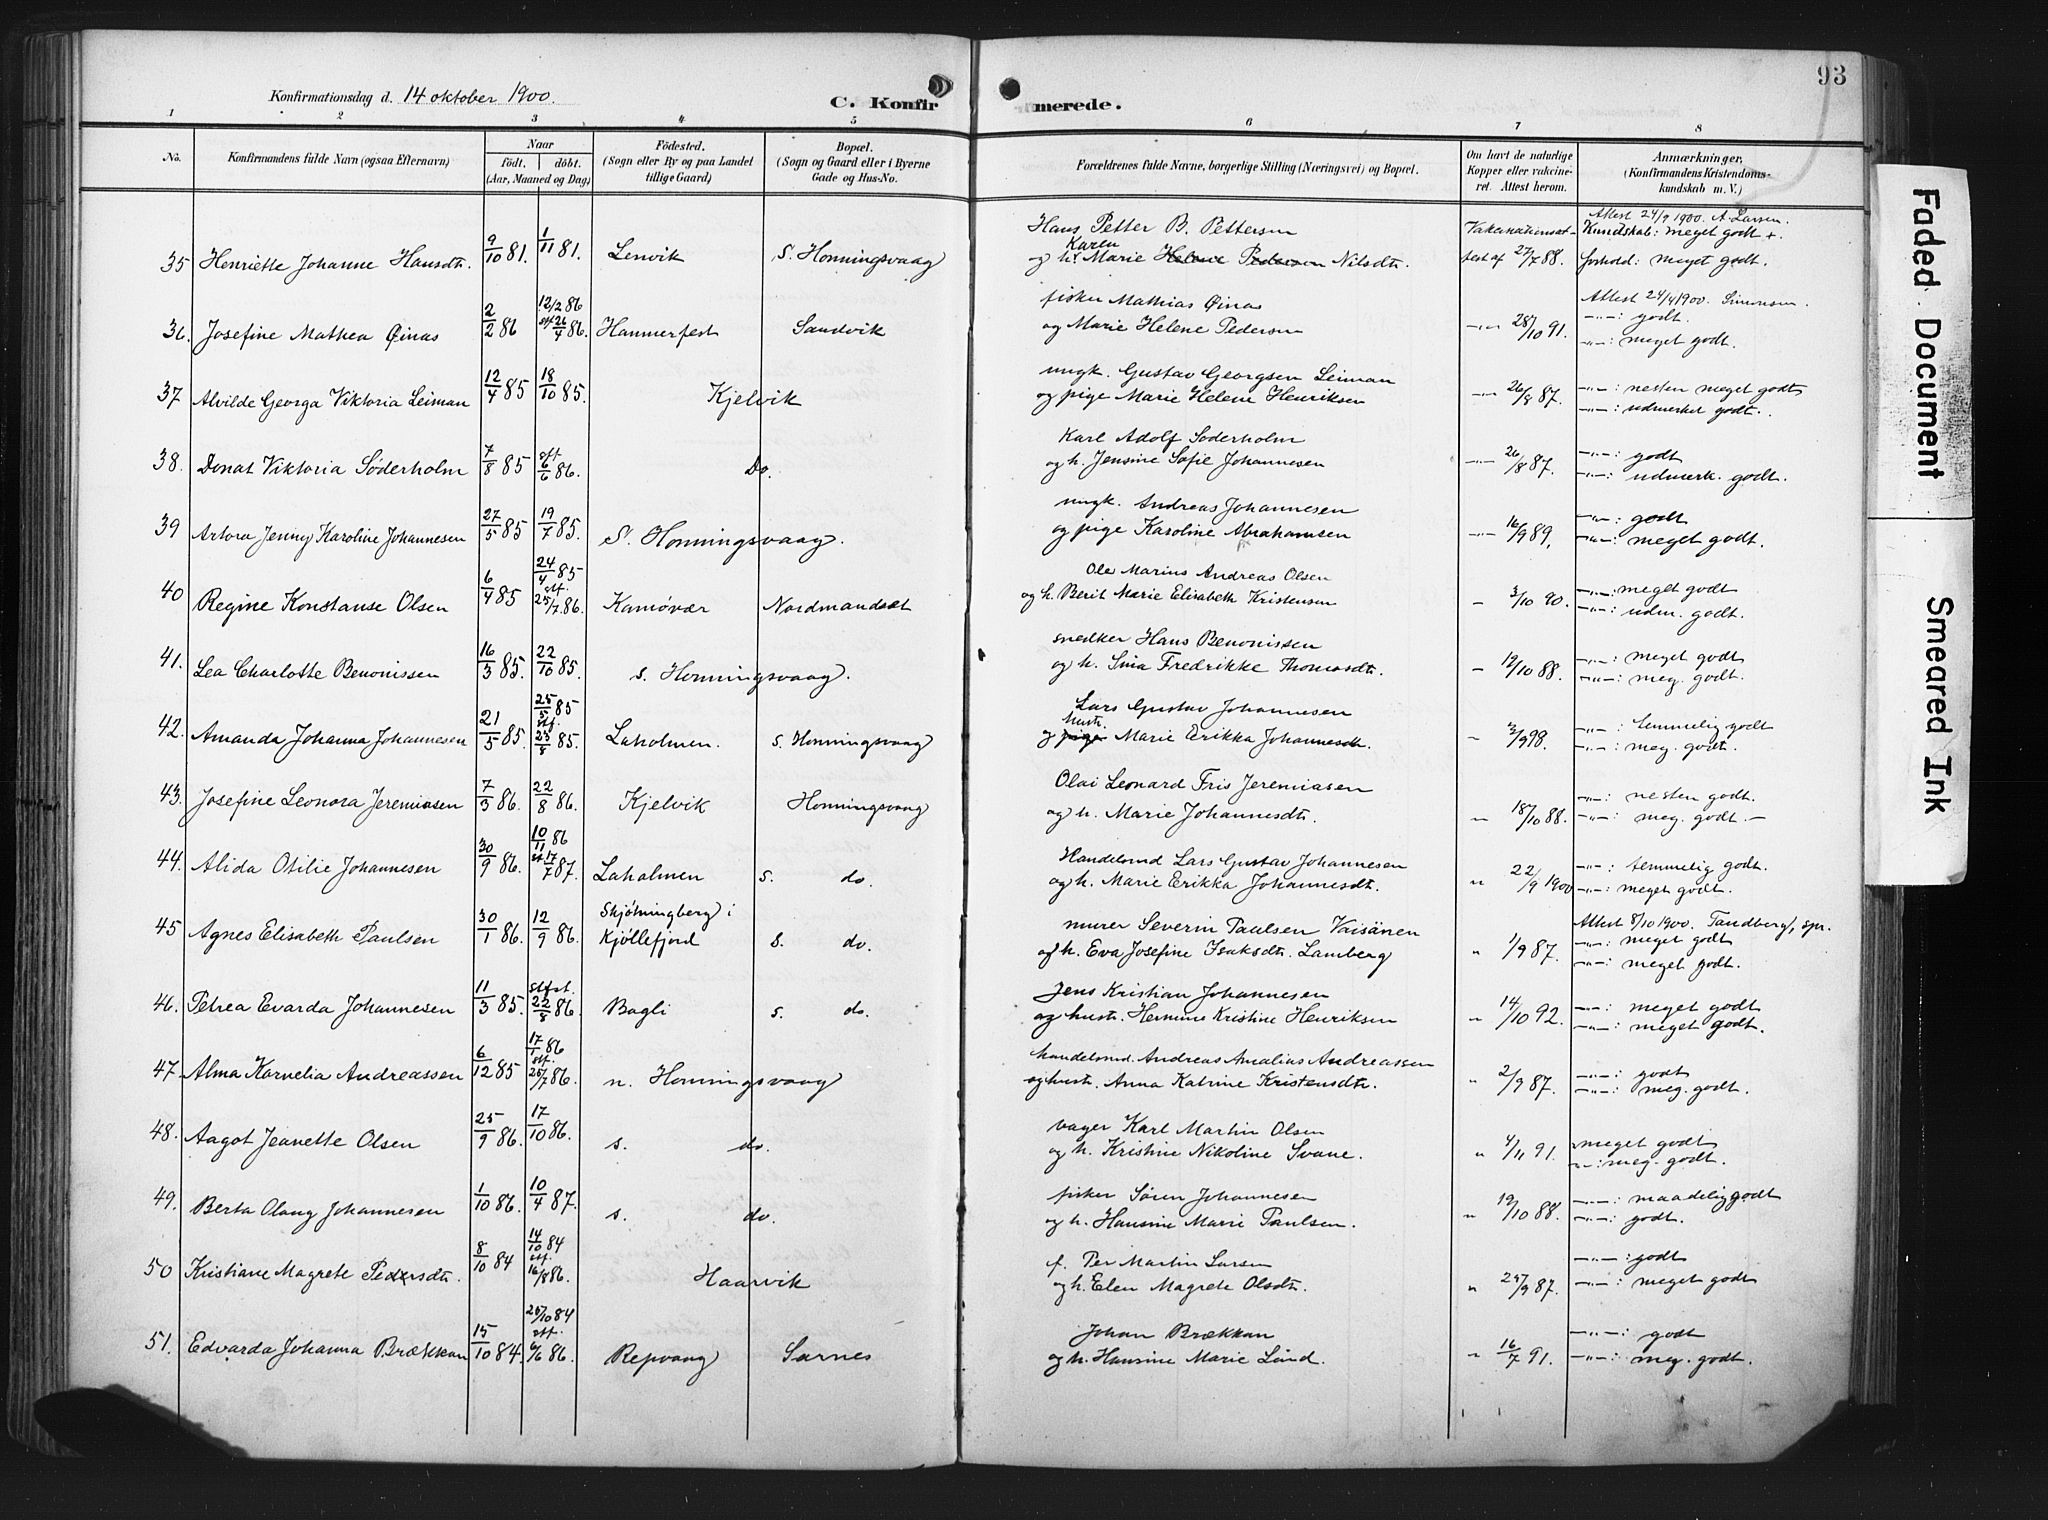 93
Konfirmationsdag d. 14 oktober 1900.
C. Konfirmerede.
1 2 3 4 5 6 7 8
No.
Konfirmandens fulde Navn (ogsaa Efternavn)
Naar
født. døbt.
(Aar, Maaned og Dag)
Fødested.
(Sogn eller By og paa Landet
tillige Gaard)
Bopæl.
(Sogn og Gaard eller i Byerne
Gade og Hus-No.
Forældrenes fulde Navne, borgerlige Stilling (Næringsvei) og Bopæl.
Om havt de naturlige
Kopper eller vakcine-
ret. Attest herom.
Anmærkninger,
(Konfirmandens Kristendoms-
kundskab m. V.)
Hans Petter B. Pettersen Vakcinationsat- Attest 24/9 1900. A. Larsen.
Kundskab: meget godt +.
35 Henriette Johanne Hansdt. 9/10 81. 1/11 81. Lenvik S. Honningsvaag og h. Karen Marie Helene Pedersen Nilsdt. test af 27/7 88. forhold: meget godt.
36. Josefine Mathea Øinas 2/2 86 12/2 86 stf 26/4 86. Hammerfest Sandvik fisker Mathias Øinas Attest 24/4 1900. Simonsen.
og Marie Helene Pedersen —"— 28/10 91. —"—: godt.
—"—: meget godt.
37 Alvilde Georga Viktoria Leiman 12/4 85 18/10 85. Kjelvik ungk. Gustav Georgsen Leiman
og pige Marie Helene Henriksen —"— 26/8 87. —"—: nesten meget godt
—"—: udmerket godt.
38. Donat Viktoria Søderholm 7/8 85 stf 6/6 86. Do. Karl Adolf Søderholm
og h. Jensine Sofie Johannesen —"— 26/8 87. —"—: godt
—"—: udmerk. godt.
39 Artora Jenny Karoline Johannesen 27/5 85 19/7 85. S. Honningsvaag. ungk. Andreas Johannesen
og pige Karoline Abrahamsen —"— 16/9 89. —"—: godt
—"—: meget godt.
40 Regine Konstanse Olsen 6/4 85 24/4 85 stf. 25/7 86. Kamøvær Nordmandset Ole Marius Andreas Olsen
og h. Berit Marie Elisabeth Kristensen — 3/10 90. —"—: meget godt
—"—: udm. godt.
41. Lea Charlotte Benonissen 16/3 85. 22/10 85. s. Honningsvaag. snedker Hans Benonissen
og h. Sina Fredrikke Thomasdt. — 19/10 88. —"—: meget godt
—"—: meg. godt.
42. Amanda Johanna Johannesen 21/5 85. 25/5 85 stf. 23/8 85. Laholmen. s. Honningsvaag Lars Gustav Johannesen
og pige hustr. Marie Erikka Johannesdt. — 3/9 98. —"—: temmelig godt
—"—: meg. godt.
43. Josefine Leonora Jeremiasen 7/3 86. 22/8 86. Kjelvik Honningsvaag Olai Leonard Fris Jeremiasen
og h. Marie Johannesdt. " 18/10 88. —"—: nesten godt.
—"—: meg. godt. —
44. Alida Otilie Johannesen 30/9 86. 10/11 86 stf 17/7 87. Laholmen s. do. Handelsmd Lars Gustav Johannesen
og h. Marie Erikka Johannesdt. " 22/9 1900 —"—: temmelig godt.
—"—: meget godt.
45 Agnes Elisabeth Paulsen 30/1 86. 12/9 86. Skjøtningberg i Kjøllefjord s. do. murer Severin Paulsen Vaisänen Attest 8/10 1900. Tandberg, spr.
og h. Eva Josefine Isaksdt. Lamberg " 1/9 87. —"—: meget godt
—"—: meget godt.
46. Petrea Evarda Johannesen 11/3 85. stfst. 22/8 86. Bagli s. do. Jens Kristian Johannesen
og hustr. Hermine Kristine Henriksen " 14/10 92. —"—: meget godt
—"—: meget godt.
47. Alma Kornelia Andreassen 6/12 85 17/1 86 stf. 25/7 86. n. Honningsvaag handelsmd. Andreas Amalias Andreassen
og hustr. Anna Katrine Kristensdt. " 2/9 87. —"—: godt
—"—: meg. godt.
48. Aagot Jeanette Olsen 25/9 86. 17/10 86. s. do. vager Karl Martin Olsen
og h. Kristine Nikoline Svane. " 4/11 91. meget godt
—"—: meg. godt.
49. Berta Olaug Johannesen 1/10 86. 10/4 87. s. do. fisker Søren Johannesen
og h. Hansine Marie Paulsen. " 19/10 88. —"—: maadelig godt
—"—: godt.
50 Kristiane Magrete Pedersdt. 8/10 84 14/10 84 stf. 16/8 86. Haarvik f. Per Martin Larsen
og h. Elen Magrete Olsdt. " 27/9 87. —"—: godt
—"—: meget godt
51. Edvarda Johanna Brækkan 15/10 84. 25/10 84 stf. 6/6 86. Repvaag Sarnes Johan Brækkan
og h. Hansine Marie Lund. " 16/7 91. —"—: godt
—"—: meg. godt.
Faded Document
Smeared Ink